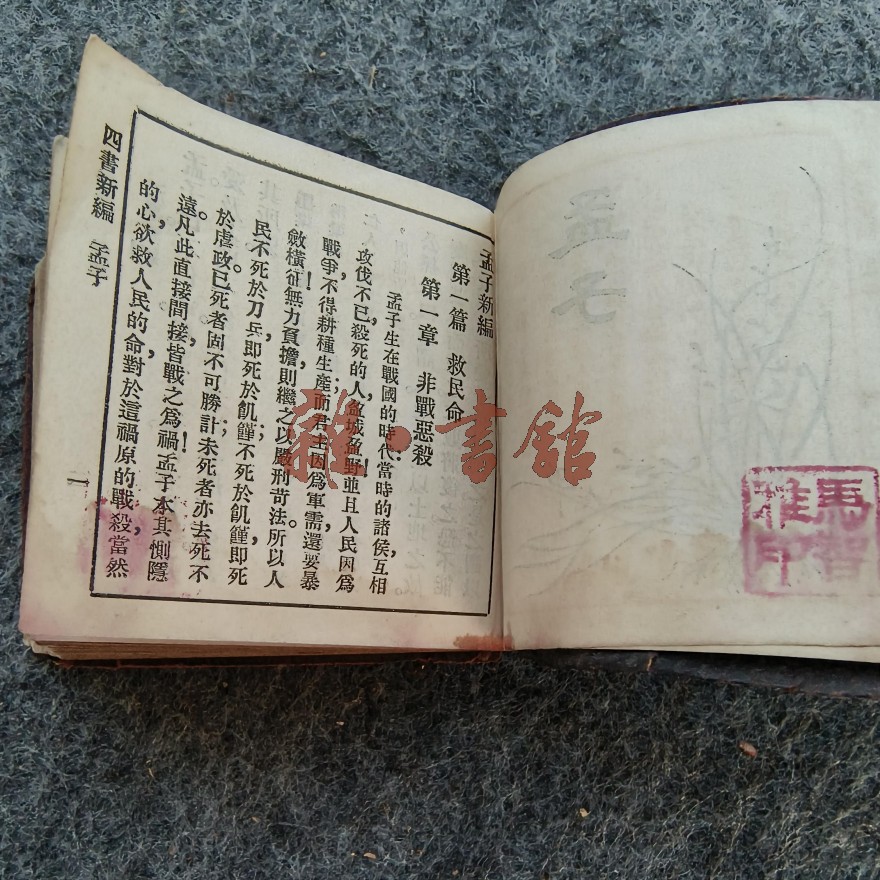 孟子
孟子新編
第一篇 救民命
第一章 非戰惡殺
孟子生在戰國的時代,當時的諸侯互相
攻伐不已,殺死的人盈城盈野!並且人民因爲
戰爭,不得耕種生產;而君主因爲軍需,還要暴
斂橫征!無力負擔,則繼之以嚴刑苛法。所以人
民不死於刀兵,即死於飢饉;不死於飢饉,即死
於虐政。已死者固不可勝計,未死者亦去死不
遠。凡此直接間接,皆戰之爲禍。孟子本其惻隱
的心,欲救人民的命,對於這禍原的戰殺,當然
四書新編 孟子
一
雜·書館